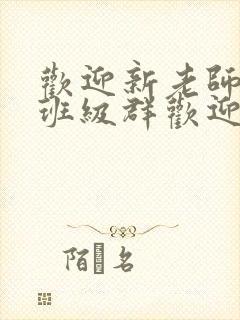 歡迎新老師
班級群歡迎
陌 名